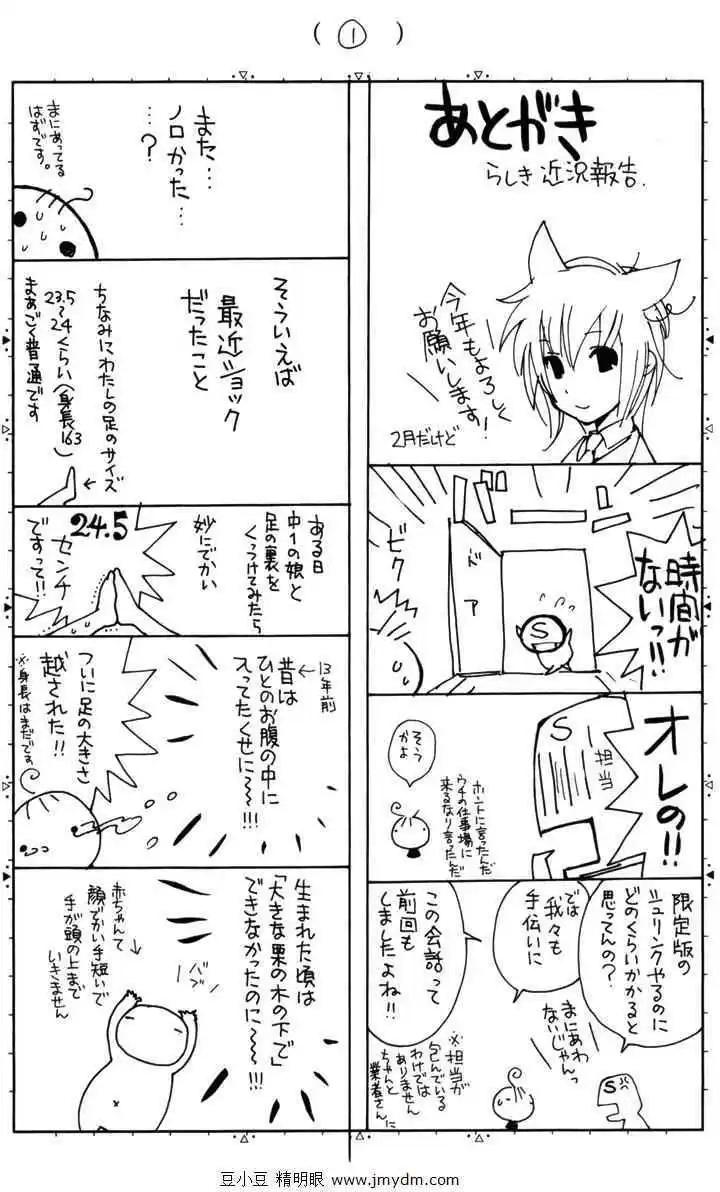 (①)
あとがき
らしき近況報告.
今年もよろしく
お願いします!
2月だけど
時間が
ないっ!!
ビク
ドア
S
オレの!!
S
担当
そう
かよ
ホントに言ったんだ
ウチの仕事場に
来るなり言ったんだ
限定版の
シュリンクやるのに
どのくらいかかると
思ってんの?
まにあわ
ないじゃんっ
では
我々も
手伝いに
この会話って
前回も
しましたよね!!
※担当が
包んでいる
わけでは
ありません
ちゃんと
業者さんに
S
また…
ノロかった…
…?
まにあってる
はずです。
そういえば
最近ショック
だったこと
ちなみにわたしの足のサイズ
23.5
〜24くらい(身長163)
まあごく普通です
ある日
中1の娘と
足の裏を
くっつけてみたら
妙にでかい
24.5
センチ
ですって!!
13年前
昔は
ひとのお腹の中に
入ってたくせに〜〜!!!
ついに足の大きさ
越された!!
※身長はまだです
生まれた頃は
「大きな栗の木の下で」
できなかったのに〜〜!!!
バブ
赤ちゃんて
顔でかい手短いで
手が頭の上まで
いきません
豆小豆 精明眼 www.jmydm.com